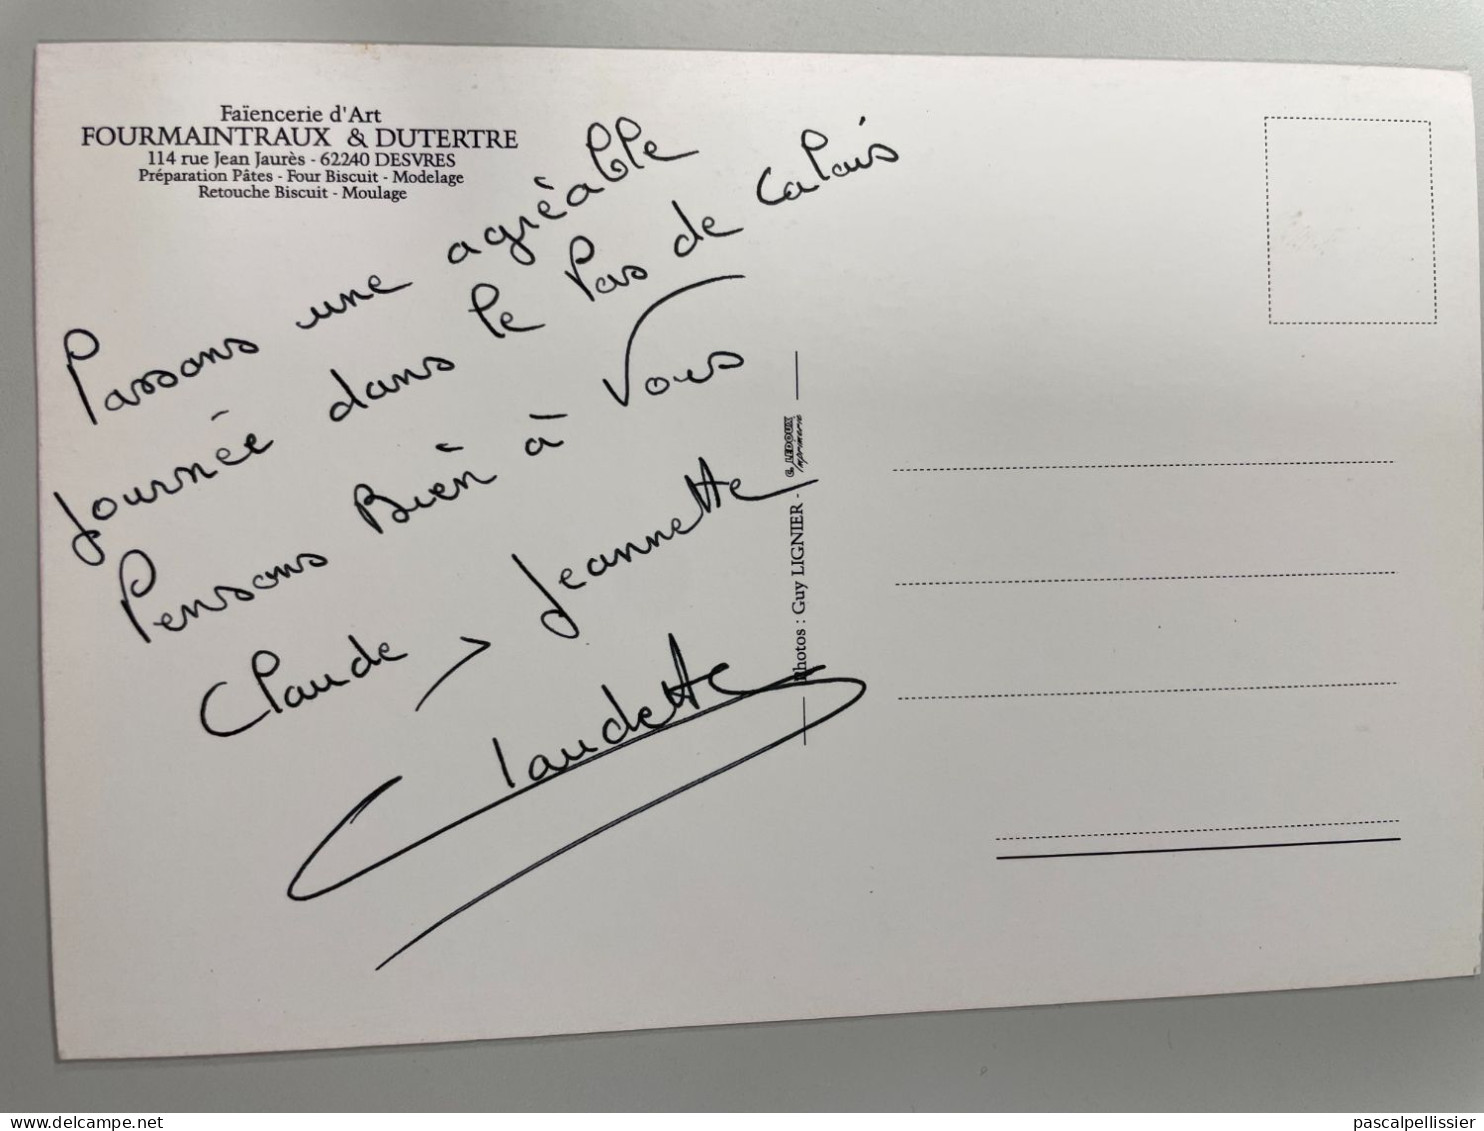 Faïencerie d'Art
FOURMAINTRAUX & DUTERTRE
114 rue Jean Jaurès - 62240 DESVRES
Préparation Pâtes - Four Biscuit - Modelage
Retouche Biscuit - Moulage
Passons une agréable
journée dans le Pas de Calais
Pensons Bien à Vous
Claude, Jeannette
Claudette
Photos : Guy LIGNIER - G. LEDOUX Imprimerie
delcampe.net
pascalpellissier